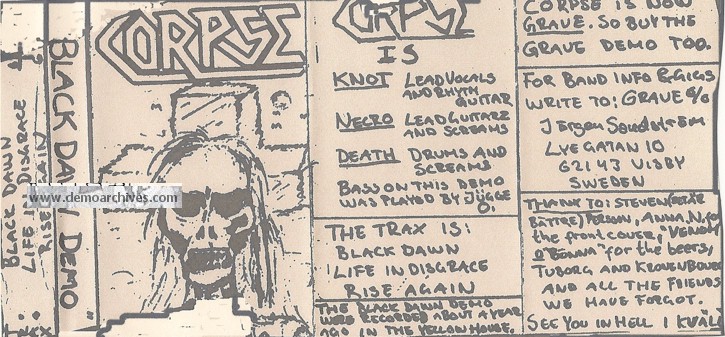 BLACK DAWN
LIFE IN DISGRACE
RISE AGAIN
"BLACK DAWN DEMO"
CORPSE
www.demoarchives.com
CORPSE
IS
KNOT LEAD VOCALS
AND RHYTH
GUITAR
NECRO LEAD GUITARZ
AND SCREAMS
DEATH DRUMS AND
SCREAMS
BASS ON THIS DEMO
WAS PLAYED BY JÜGGE
Ö.
THE TRAX IS:
BLACK DAWN
LIFE IN DISGRACE
RISE AGAIN
THE BLACK DAWN DEMO
WERE RECORDED ABOUT A YEAR
AGO IN THE YELLOW HOUSE.
CORPSE IS NOW
GRAVE. SO BUY THE
GRAVE DEMO TOO.
FOR BAND INFO & GIGS
WRITE TO: GRAVE C/O
LYEGATAN 10
62143 VISBY
SWEDEN
THANK TO: STEVEN
BÄTTRE) PERSON, ANNA.N. for
the front cover, "VENOM
O'BENNA" for the beers,
TUBORG AND KRONENBOURG
AND ALL THE FRIENDS
WE HAVE FORGOT.
SEE YOU IN HELL I KVÄLL